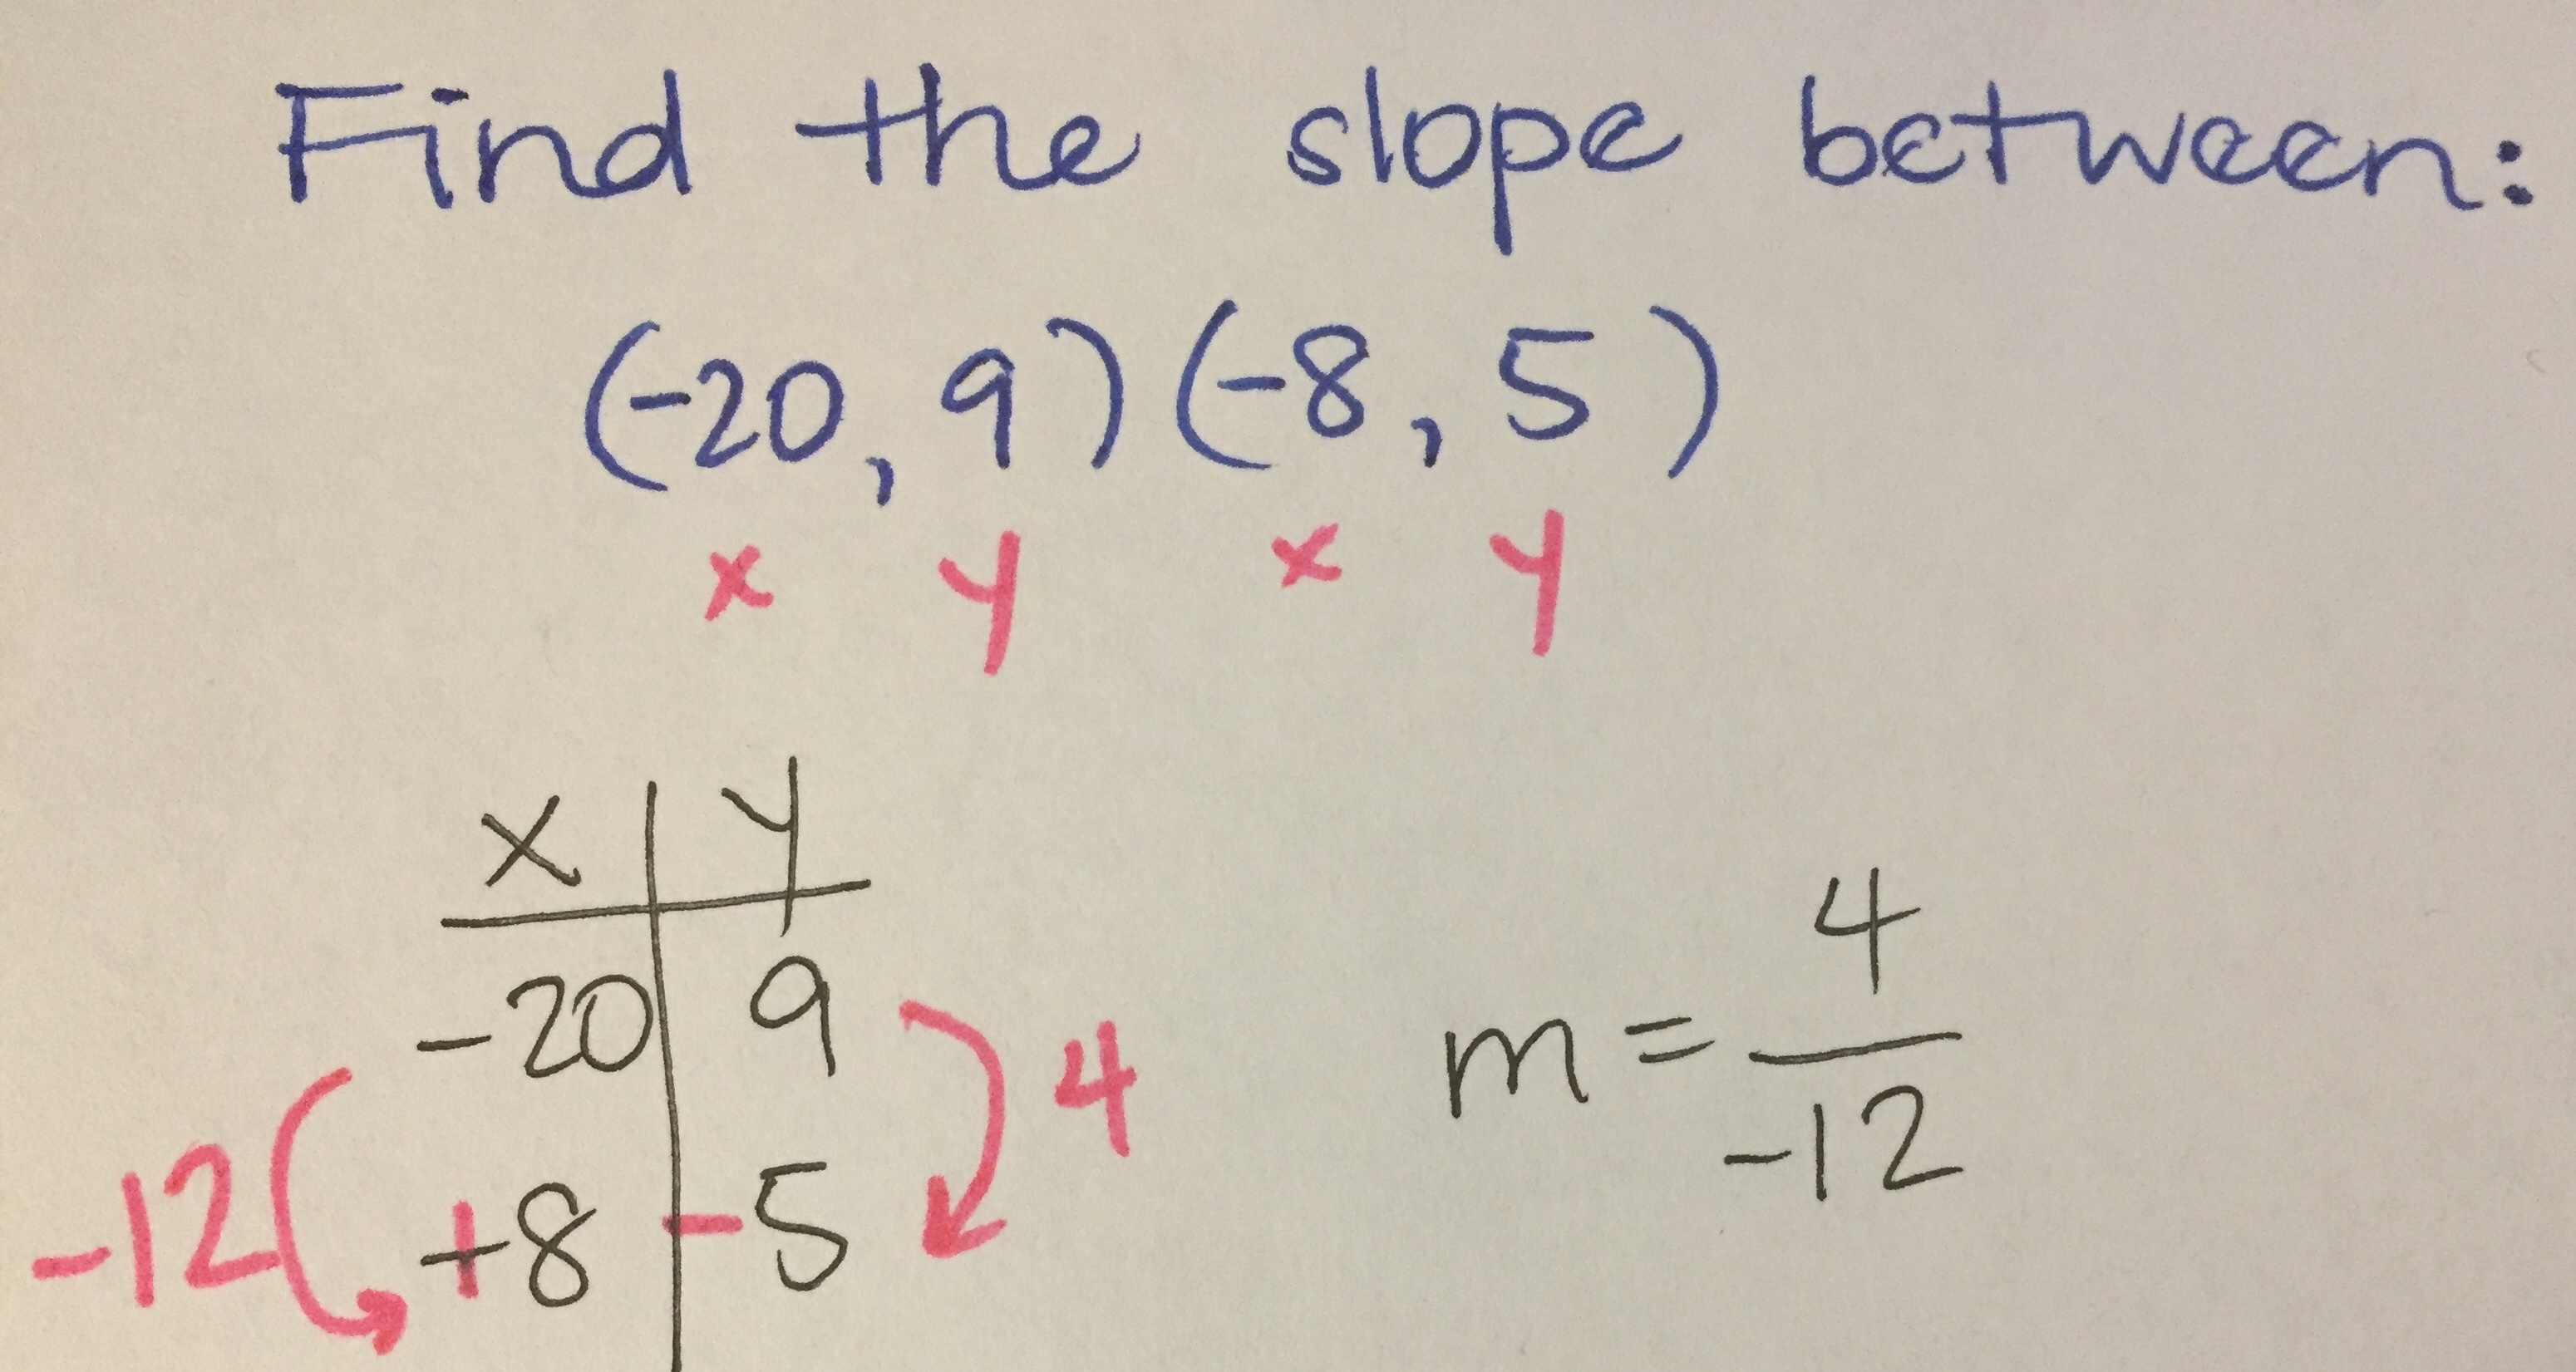 Find the slope between:
(-20, 9) (-8, 5)
x y x y
x y
-20 9
4
-12
+8 -5
m = 4/-12